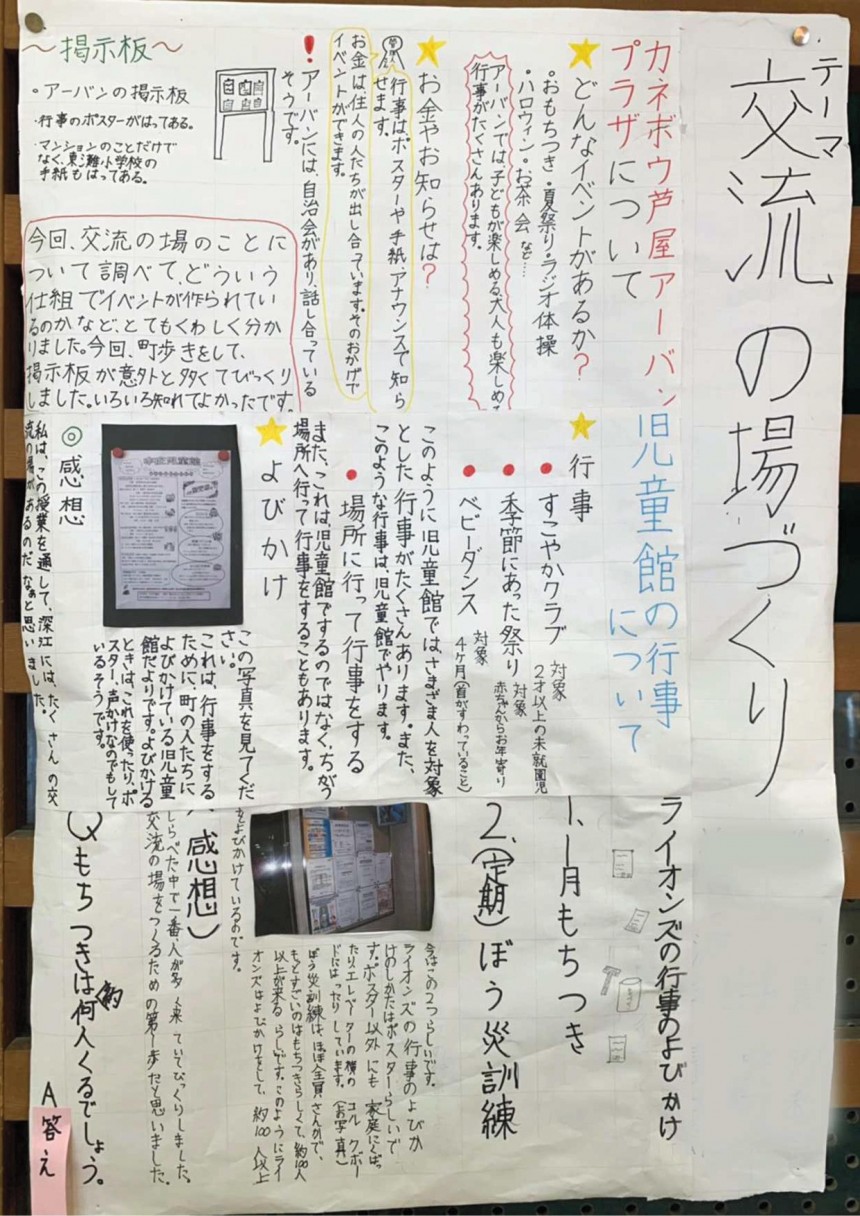 ・テーマ
交流の場づくり
カネボウ芦屋アーバン
プラザについて
どんなイベントがあるか?
・おもちつき・夏祭り・ラジオ体操
・ハロウィン・お茶会など…
アーバンでは、子どもが楽しめる、大人も楽しめる
行事がたくさんあります。
お金やお知らせは?
行事は、ポスターや手紙、アナウンスで知ら
せます。
お金は、住人の人たちが出し合っています。そのおかげで
イベントができます。
!アーバンには、自治会があり、話し合っている
そうです。
~掲示板~
・アーバンの掲示板
・行事のポスターがはってある。
・マンションのことだけで
なく、東灘小学校の
手紙もはってある。
今回、交流の場のことに
ついて調べて、どういう
仕組でイベントが作られてい
るのかなど、とてもくわしく分か
りました。今回、町歩きをして、
掲示板が意外と多くてびっくり
しました。いろいろ知れてよかったです。
児童館の行事
について
行事
すこやかクラブ 対象 2才以上の未就園児
季節にあった祭り 対象 赤ちゃんからお年寄り
ベビーダンス 対象 4ヶ月(首がすわっていること)
このように児童館では、さまざま人を対象
とした行事がたくさんあります。また、
このような行事は、児童館でやります。
場所に行って行事をする
また、これは児童館でするのではなく、ちがう
場所へ行って行事をすることもあります。
よびかけ
この写真を見てくだ
さい。
これは、行事をする
ために、町の人たちに
よびかけている児童
館だよりです。よびかける
ときは、これを使ったり、ポ
スター、声かけなのでもして
いるそうです。
◎感想
私は、この授業を通して、深江には、たくさんの交
流の場があるのだなぁと思いました。
ライオンズの行事のよびかけ
1、1月もちつき
2、(定期)ぼう災訓練
今はこの2つらしいです。
ライオンズの行事のよびか
けのしかたはポスターらしいで
す。ポスター以外にも家庭にくばっ
たり、エレベーターの横のコルクボー
ドにはったりしています。(お写真)
ぼう災訓練は、ほぼ全員さんかで、
もとすごいのはもちつきらしくて、約100人
以上が来るらしいです。このようにライ
オンズはよびかけをして、約100人以上
をよびかけているのです。
感想)
しらべた中で一番、人が多く来ていてびっくりしました。
交流の場をつくるための第一歩だと思いました。
Qもちつきは約何人くるでしょう。
A答え